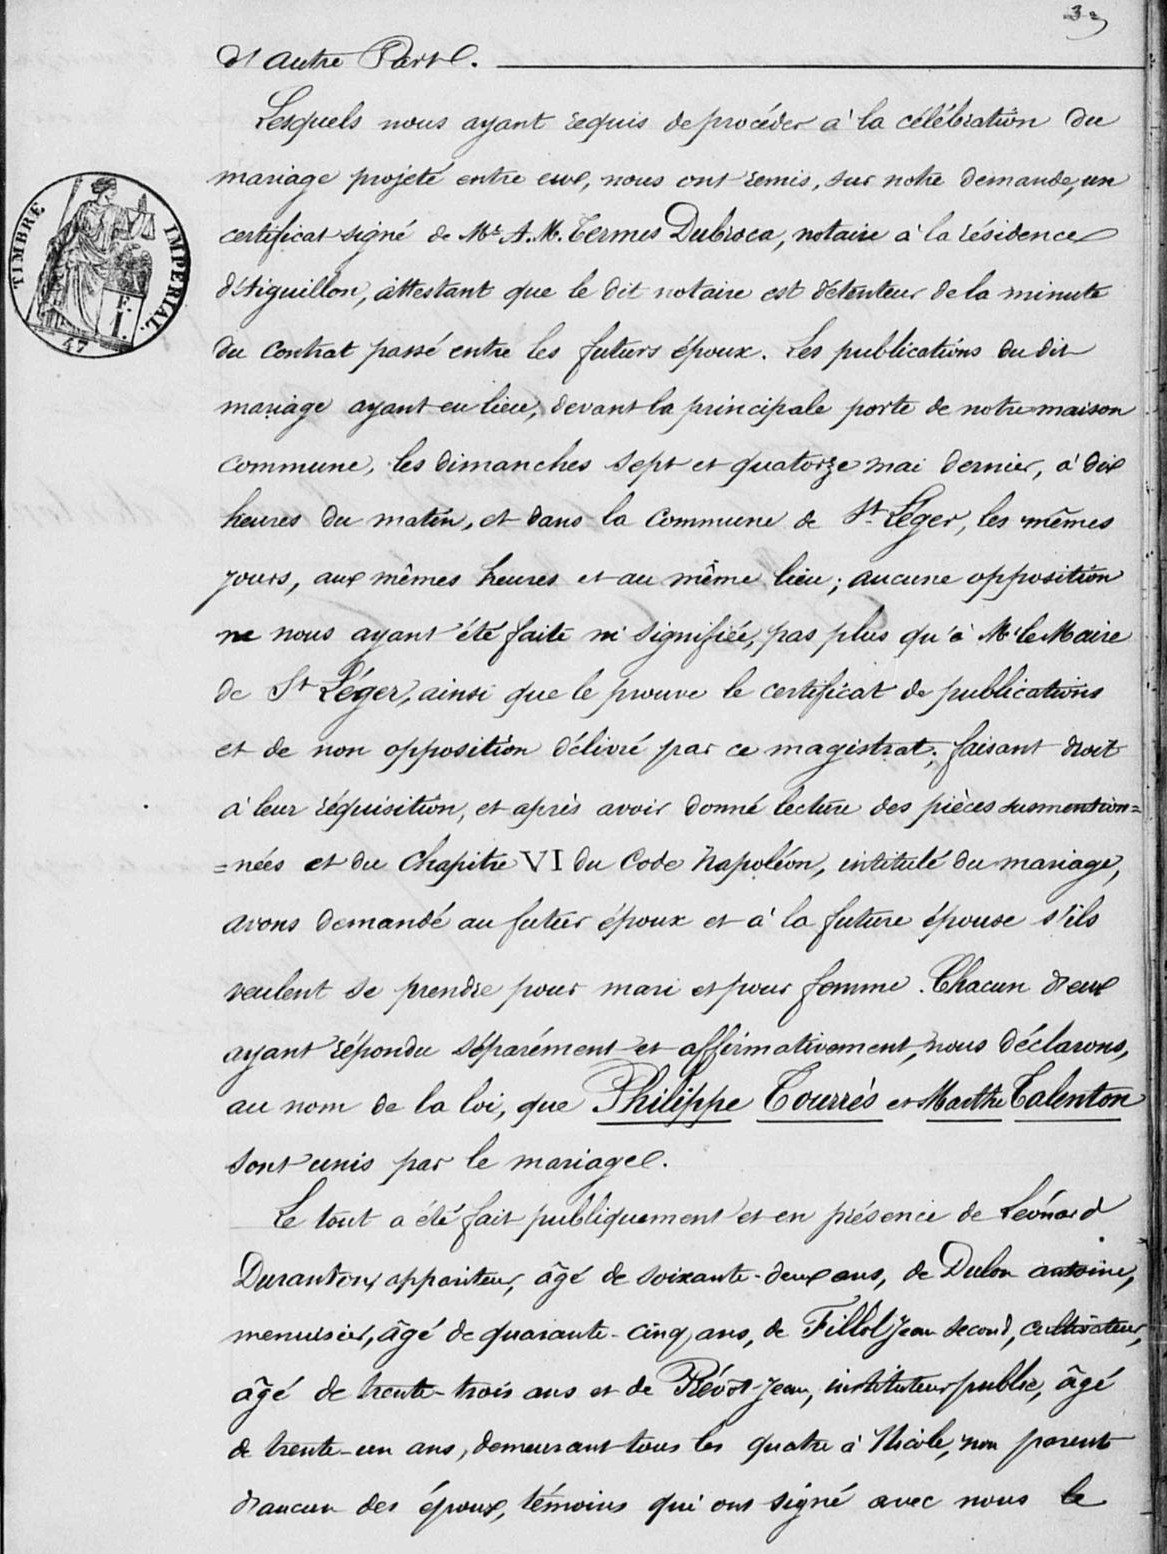 d'autre Part.
Lesquels nous ayant requis de procéder à la célébration du
mariage projeté entre eux, nous ont remis, sur notre demande, un
certificat signé de Mr A. M. Termes Dubroca, notaire à la résidence
d'Aiguillon, attestant que le dit notaire est détenteur de la minute
du contrat passé entre les futurs époux. Les publications du dit
mariage ayant eu lieu, devant la principale porte de notre maison
commune, les dimanches sept et quatorze mai dernier, à dix
heures du matin, et dans la commune de St Léger, les mêmes
jours, aux mêmes heures et au même lieu ; aucune opposition
ne nous ayant été faite ni signifiée, pas plus qu'à Mr le Maire
de St Léger, ainsi que le prouve le certificat de publications
et de non opposition délivré par ce magistrat ; faisant droit
à leur réquisition, et après avoir donné lecture des pièces susmention=
=nées et du chapitre VI du Code Napoléon, intitulé du mariage,
avons demandé au futur époux et à la future épouse s'ils
veulent se prendre pour mari et pour femme. Chacun d'eux
ayant répondu séparément et affirmativement, nous déclarons,
au nom de la loi, que Philippe Tourrès et Marthe Talenton
sont unis par le mariage.
Le tout a été fait publiquement et en présence de Léonard
Duranton, appariteur, âgé de soixante-deux ans, de Dulon antoine,
menuisier, âgé de quarante-cinq ans, de Fillol Jean second, cultivateur,
âgé de trente-trois ans et de Prévôt Jean, instituteur public, âgé
de trente-un ans, demeurant tous les quatre à Nicole, non parents
d'aucun des époux, témoins qui ont signé avec nous le
TIMBRE IMPERIAL.
F.
1.
47